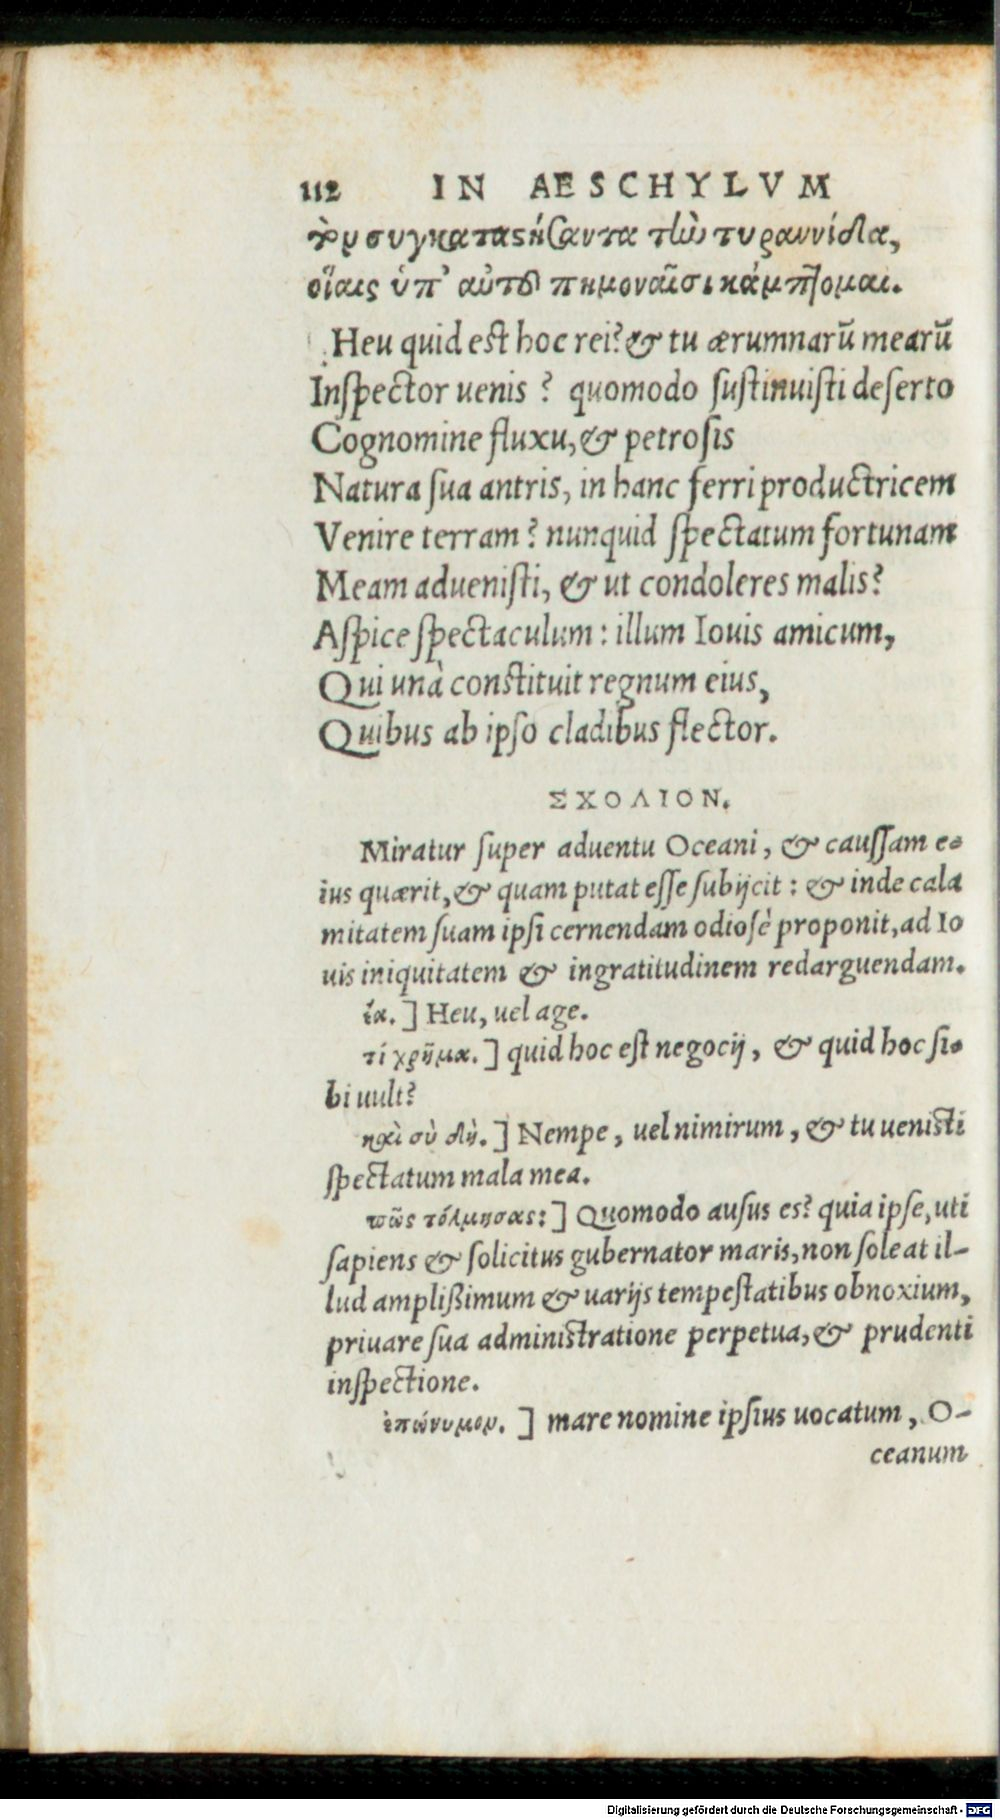 112 IN AESCHYLVM
τὸν συγκαταστήσαντα τὼ τυραννίδα,
οἵαις ὑπ' αὐτοῦ πημοναῖσι κάμπτομαι.
Heu quid est hoc rei? & tu ærumnarũ mearũ
Inspector uenis? quomodo sustinuisti deserto
Cognomine fluxu, & petrosis
Natura sua antris, in hanc ferri productricem
Venire terram? nunquid spectatum fortunam
Meam aduenisti, & ut condoleres malis?
Aspice spectaculum: illum Iouis amicum,
Qui unà constituit regnum eius,
Quibus ab ipso cladibus flector.
ΣΧΟΛΙΟΝ.
Miratur super aduentu Oceani, & caussam e-
ius quærit, & quam putat esse subijcit: & inde cala
mitatem suam ipsi cernendam odiosè proponit, ad Io
uis iniquitatem & ingratitudinem redarguendam.
ἔα.] Heu, uel age.
τί χρῆμα.] quid hoc est negocij, & quid hoc si-
bi uult?
καὶ σὺ δὴ.] Nempe, uel nimirum, & tu uenisti
spectatum mala mea.
πῶς τόλμησας:] Quomodo ausus es? quia ipse, uti
sapiens & solicitus gubernator maris, non soleat il-
lud amplißimum & uarijs tempestatibus obnoxium,
priuare sua administratione perpetua, & prudenti
inspectione.
ἐπώνυμον.] mare nomine ipsius uocatum, O-
ceanum
Digitalisierung gefördert durch die Deutsche Forschungsgemeinschaft - DFG